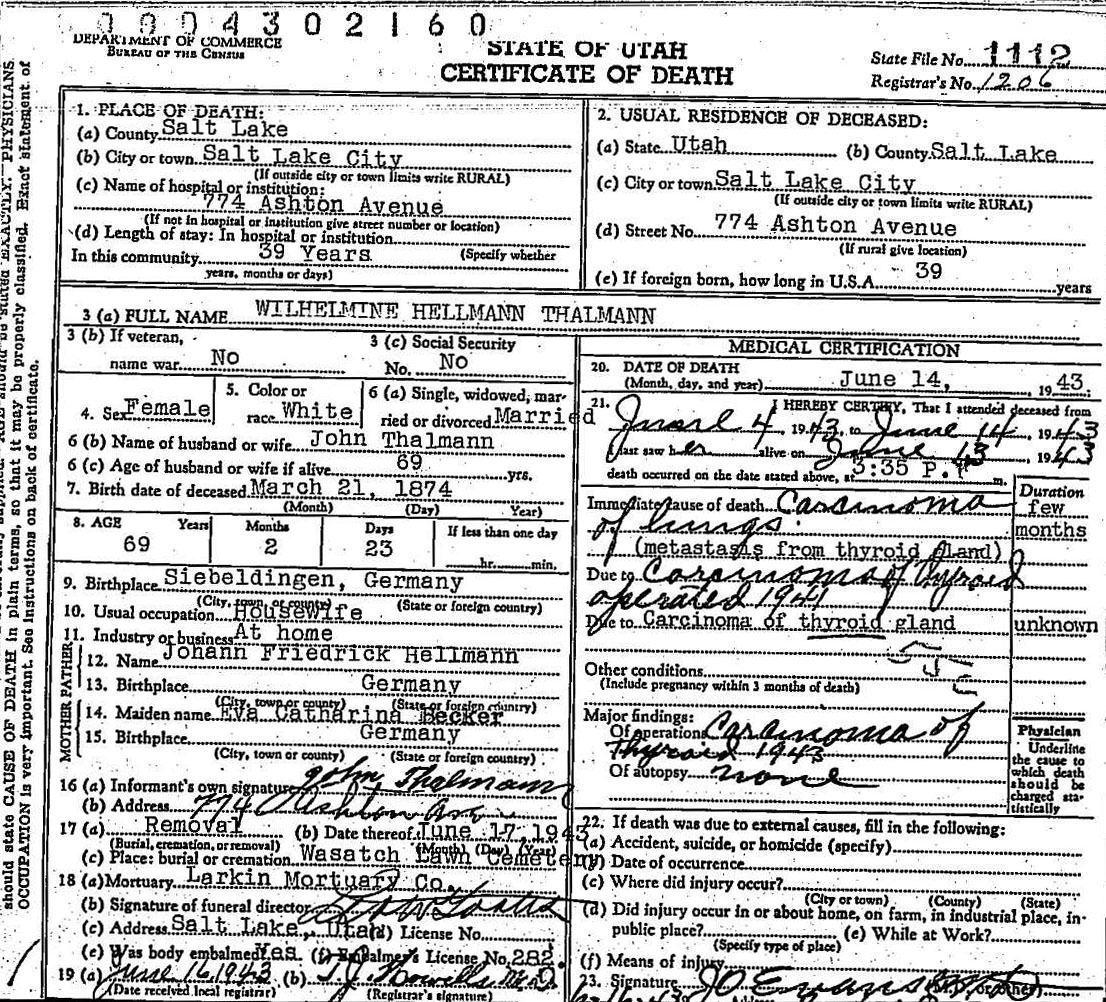 0004302160
DEPARTMENT OF COMMERCE
BUREAU OF THE CENSUS
STATE OF UTAH
CERTIFICATE OF DEATH
State File No. 1112
Registrar's No. 1206
should state CAUSE OF DEATH in plain terms, so that it may be properly classified. Exact statement of
OCCUPATION is very important. See instructions on back of certificate.
1. PLACE OF DEATH:
(a) County Salt Lake
(b) City or town Salt Lake City
(If outside city or town limits write RURAL)
(c) Name of hospital or institution:
774 Ashton Avenue
(If not in hospital or institution give street number or location)
(d) Length of stay: In hospital or institution
In this community 39 Years (Specify whether
years, months or days)
2. USUAL RESIDENCE OF DECEASED:
(a) State Utah (b) County Salt Lake
(c) City or town Salt Lake City
(If outside city or town limits write RURAL)
(d) Street No. 774 Ashton Avenue
(If rural give location)
(e) If foreign born, how long in U.S.A. 39 years
3 (a) FULL NAME WILHELMINE HELLMANN THALMANN
3 (b) If veteran, name war No
3 (c) Social Security No. No
4. Sex Female
5. Color or race White
6 (a) Single, widowed, married or divorced Married
6 (b) Name of husband or wife John Thalmann
6 (c) Age of husband or wife if alive 69 yrs.
7. Birth date of deceased March 21, 1874
(Month) (Day) Year)
8. AGE Years Months Days If less than one day
69 2 23 hr. min.
9. Birthplace Siebeldingen, Germany
(City, town, or county) (State or foreign country)
10. Usual occupation Housewife
11. Industry or business At home
FATHER
12. Name Johann Friedrick Hellmann
13. Birthplace Germany
(City, town or county) (State or foreign country)
MOTHER
14. Maiden name Eva Catharina Becker
15. Birthplace Germany
(City, town or county) (State or foreign country)
16 (a) Informant's own signature John Thalmann
(b) Address 774 Ashton Ave
17 (a) Removal (b) Date thereof June 17 1943
(Burial, cremation, or removal) (Month) (Day) (Year)
(c) Place: burial or cremation Wasatch Lawn Cemetery
18 (a) Mortuary Larkin Mortuary Co.
(b) Signature of funeral director
(c) Address Salt Lake, Utah (d) License No.
(e) Was body embalmed Yes (f) Embalmer's License No. 282
19 (a) June 16 1943 (b) T. J. Howells M.D.
(Date received local registrar) (Registrar's signature)
MEDICAL CERTIFICATION
20. DATE OF DEATH
(Month, day, and year) June 14, 1943.
21. I HEREBY CERTIFY, That I attended deceased from
June 4 1943, to June 14 1943
last saw her alive on June 13 1943
death occurred on the date stated above, at 3:35 P. m.
Duration
Immediate cause of death Carcinoma few
of lungs months
(metastasis from thyroid gland)
Due to Carcinoma of Thyroid
operated 1941
Due to Carcinoma of thyroid gland unknown
Other conditions
(Include pregnancy within 3 months of death)
Major findings:
Of operations Carcinoma of
Thyroid 1943
Of autopsy none
Physician
Underline
the cause to
which death
should be
charged statistically
22. If death was due to external causes, fill in the following:
(a) Accident, suicide, or homicide (specify)
(b) Date of occurrence
(c) Where did injury occur?
(City or town) (County) (State)
(d) Did injury occur in or about home, on farm, in industrial place, in-
public place? (e) While at Work?
(Specify type of place)
(f) Means of injury
23. Signature J O Evans